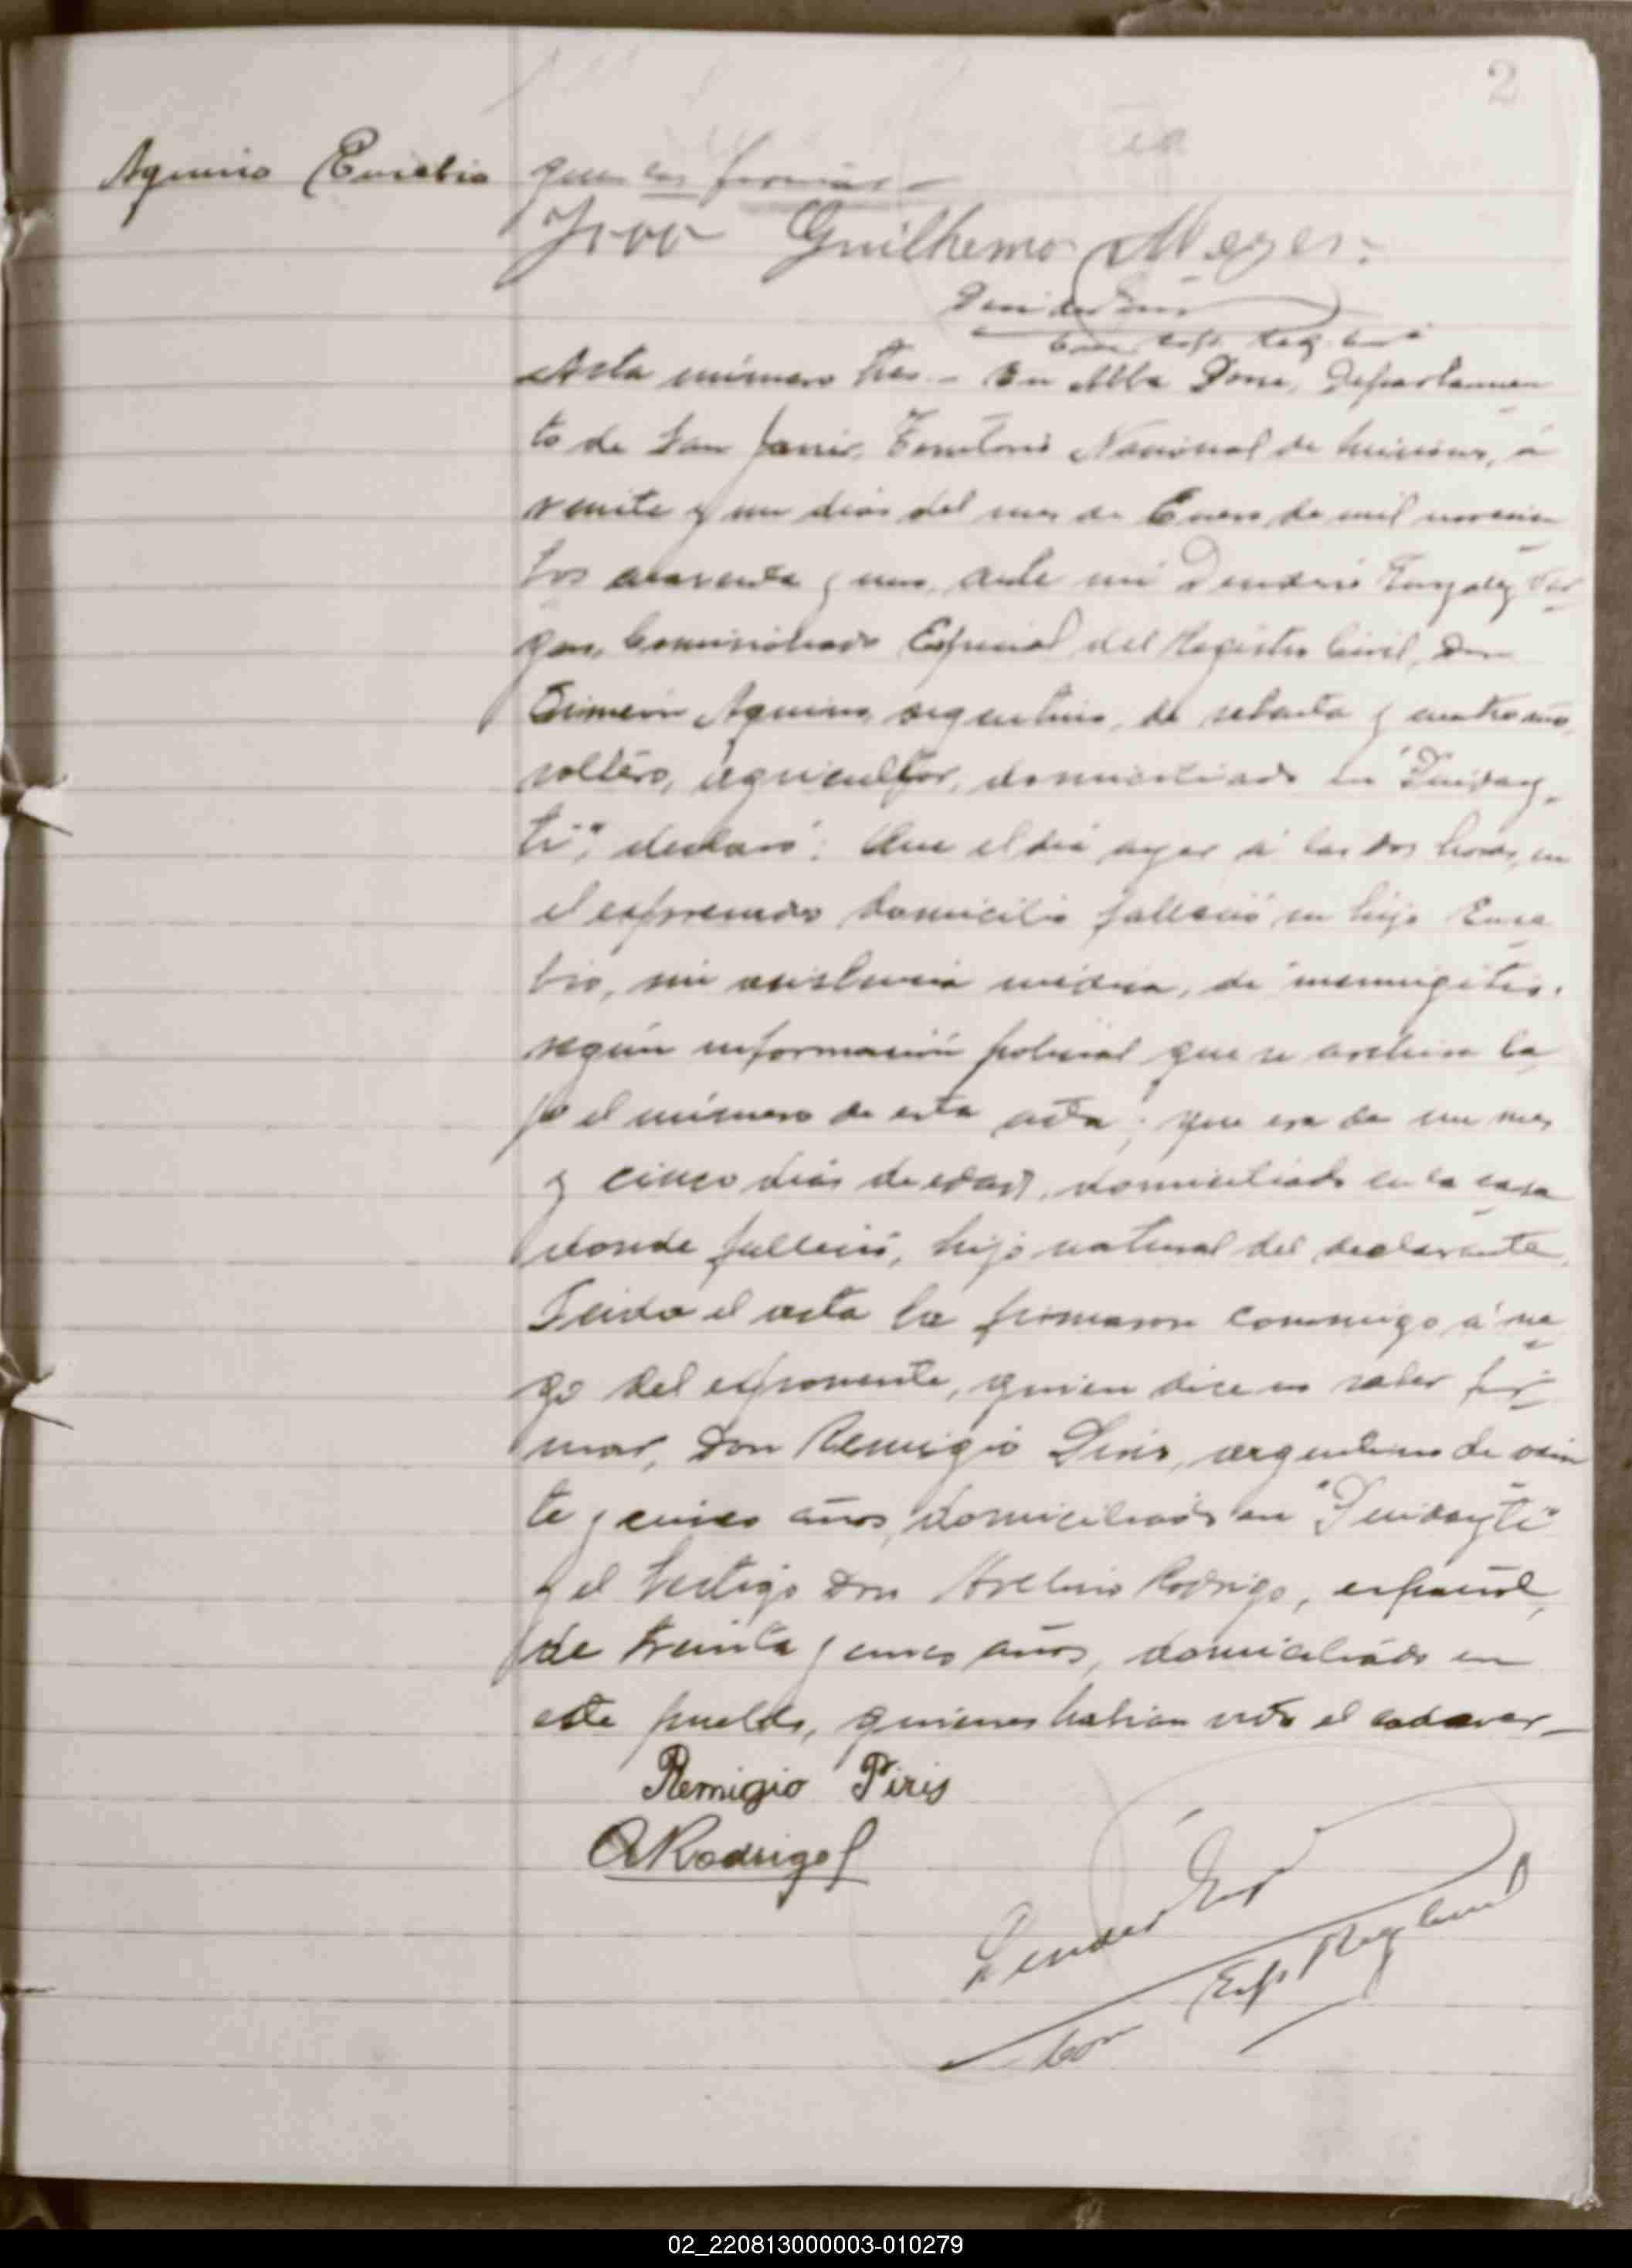 2
Aquino Eusebio
que las firman.-
João Guilhermo Meyer.
Esp. Reg. Civil
Acta número tres.- En Alba Posse, Departamen
to de San Javier, Territorio Nacional de Misiones, á
veinte y un dias del mes de Enero de mil novecien
tos cuarenta y uno, ante mi González Var
gas, Comisionado Especial del Registro Civil, Don
Simeón Aquino, argentino, de setenta y cuatro años,
soltero, agricultor, domiciliado en
declaró: Que el dia ayer á las dos horas, en
el expresado domicilio falleció su hijo Euse
bio, sin asistencia médica, de meningitis.
según información policial que se archiva ba
jo el número de esta acta; que era de un mes
y cinco dias de edad, domiciliado en la casa
donde falleció, hijo natural del declarante.
Leida el acta la firmaron conmigo á rue
go del exponente, quien dice no saber fir
mar, Don Remigio Piris, argentino de vein
te y cinco años, domiciliado en
y el testigo Don Avelino Rodrigo, español,
de treinta y cinco años, domiciliado en
este pueblo, quienes habian visto el cadaver.-
Remigio Piris
ARodrigo
Com Esp. Reg Civil
02_220813000003-010279